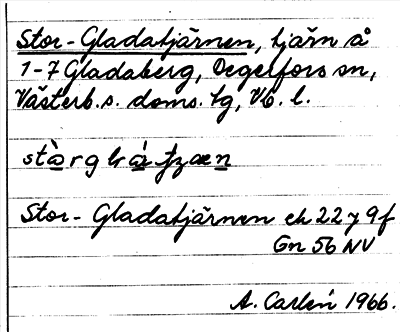 Stor-Gladatjärnen, tjärn å
1-7 Gladaberg, Degerfors sn,
Västerb. s. doms. tg, Vb. l.
Stor-Gladatjärnen ek 22 y 9f
Gn 56 NV
A. Carlén 1966.